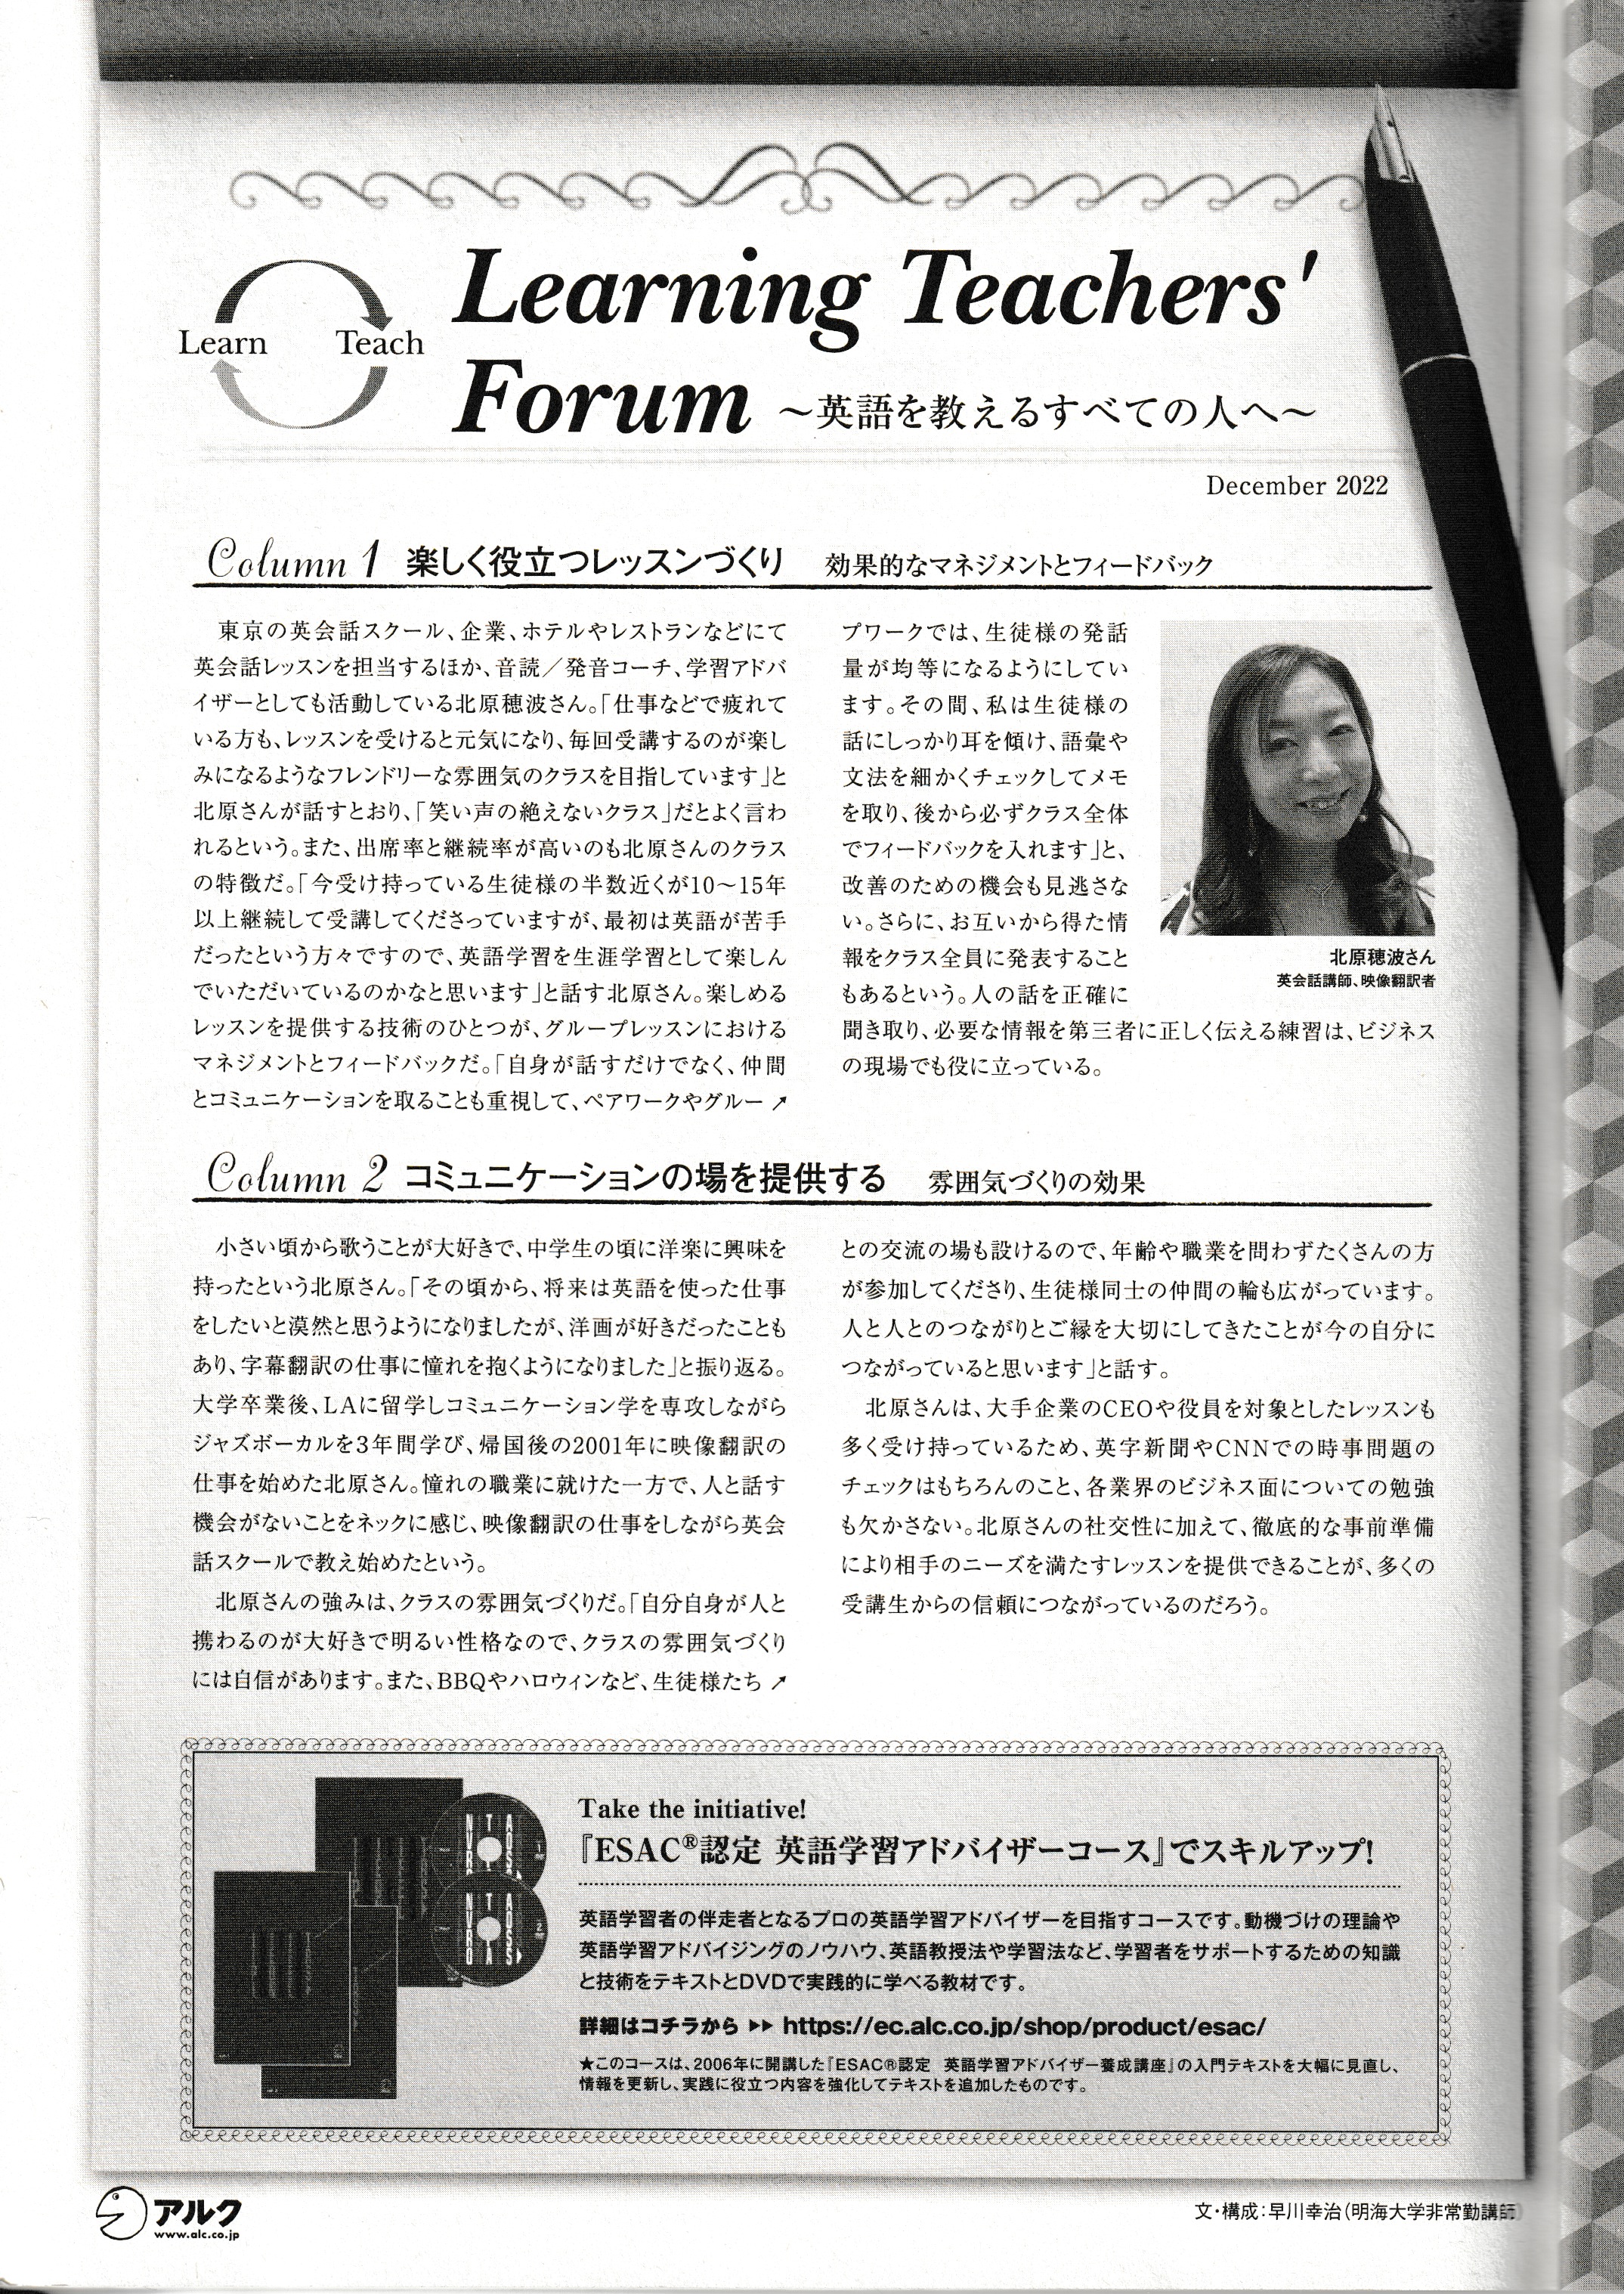 Learn Teach
Learning Teachers'
Forum ～英語を教えるすべての人へ～
December 2022
Column 1 楽しく役立つレッスンづくり 効果的なマネジメントとフィードバック
東京の英会話スクール、企業、ホテルやレストランなどにて
英会話レッスンを担当するほか、音読／発音コーチ、学習アドバ
イザーとしても活動している北原穂波さん。「仕事などで疲れて
いる方も、レッスンを受けると元気になり、毎回受講するのが楽し
みになるようなフレンドリーな雰囲気のクラスを目指しています」と
北原さんが話すとおり、「笑い声の絶えないクラス」だとよく言わ
れるという。また、出席率と継続率が高いのも北原さんのクラス
の特徴だ。「今受け持っている生徒様の半数近くが10～15年
以上継続して受講してくださっていますが、最初は英語が苦手
だったという方々ですので、英語学習を生涯学習として楽しん
でいただいているのかなと思います」と話す北原さん。楽しめる
レッスンを提供する技術のひとつが、グループレッスンにおける
マネジメントとフィードバックだ。「自身が話すだけでなく、仲間
とコミュニケーションを取ることも重視して、ペアワークやグルー ↗
プワークでは、生徒様の発話
量が均等になるようにしてい
ます。その間、私は生徒様の
話にしっかり耳を傾け、語彙や
文法を細かくチェックしてメモ
を取り、後から必ずクラス全体
でフィードバックを入れます」と、
改善のための機会も見逃さな
い。さらに、お互いから得た情
報をクラス全員に発表すること
もあるという。人の話を正確に
聞き取り、必要な情報を第三者に正しく伝える練習は、ビジネス
の現場でも役に立っている。
北原穂波さん
英会話講師、映像翻訳者
Column 2 コミュニケーションの場を提供する 雰囲気づくりの効果
小さい頃から歌うことが大好きで、中学生の頃に洋楽に興味を
持ったという北原さん。「その頃から、将来は英語を使った仕事
をしたいと漠然と思うようになりましたが、洋画が好きだったことも
あり、字幕翻訳の仕事に憧れを抱くようになりました」と振り返る。
大学卒業後、LAに留学しコミュニケーション学を専攻しながら
ジャズボーカルを3年間学び、帰国後の2001年に映像翻訳の
仕事を始めた北原さん。憧れの職業に就けた一方で、人と話す
機会がないことをネックに感じ、映像翻訳の仕事をしながら英会
話スクールで教え始めたという。
北原さんの強みは、クラスの雰囲気づくりだ。「自分自身が人と
携わるのが大好きで明るい性格なので、クラスの雰囲気づくり
には自信があります。また、BBQやハロウィンなど、生徒様たち ↗
との交流の場も設けるので、年齢や職業を問わずたくさんの方
が参加してくださり、生徒様同士の仲間の輪も広がっています。
人と人とのつながりとご縁を大切にしてきたことが今の自分に
つながっていると思います」と話す。
北原さんは、大手企業のCEOや役員を対象としたレッスンも
多く受け持っているため、英字新聞やCNNでの時事問題の
チェックはもちろんのこと、各業界のビジネス面についての勉強
も欠かさない。北原さんの社交性に加えて、徹底的な事前準備
により相手のニーズを満たすレッスンを提供できることが、多くの
受講生からの信頼につながっているのだろう。
Take the initiative!
『ESAC®認定 英語学習アドバイザーコース』でスキルアップ!
英語学習者の伴走者となるプロの英語学習アドバイザーを目指すコースです。動機づけの理論や
英語学習アドバイジングのノウハウ、英語教授法や学習法など、学習者をサポートするための知識
と技術をテキストとDVDで実践的に学べる教材です。
詳細はコチラから ▶▶ https://ec.alc.co.jp/shop/product/esac/
★このコースは、2006年に開講した『ESAC®認定 英語学習アドバイザー養成講座』の入門テキストを大幅に見直し、
情報を更新し、実践に役立つ内容を強化してテキストを追加したものです。
アルク
www.alc.co.jp
文・構成：早川幸治（明海大学非常勤講師）